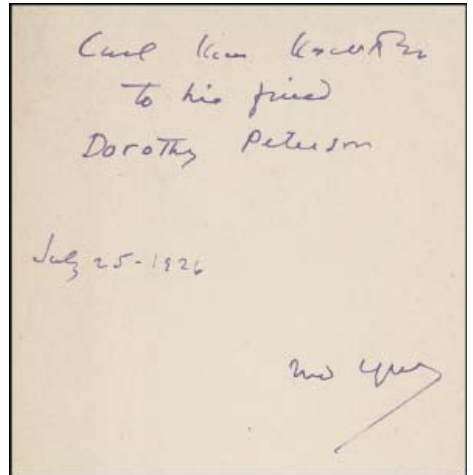 Carl Van Vechten
to his friend
Dorothy Peterson
July 25-1926
New York